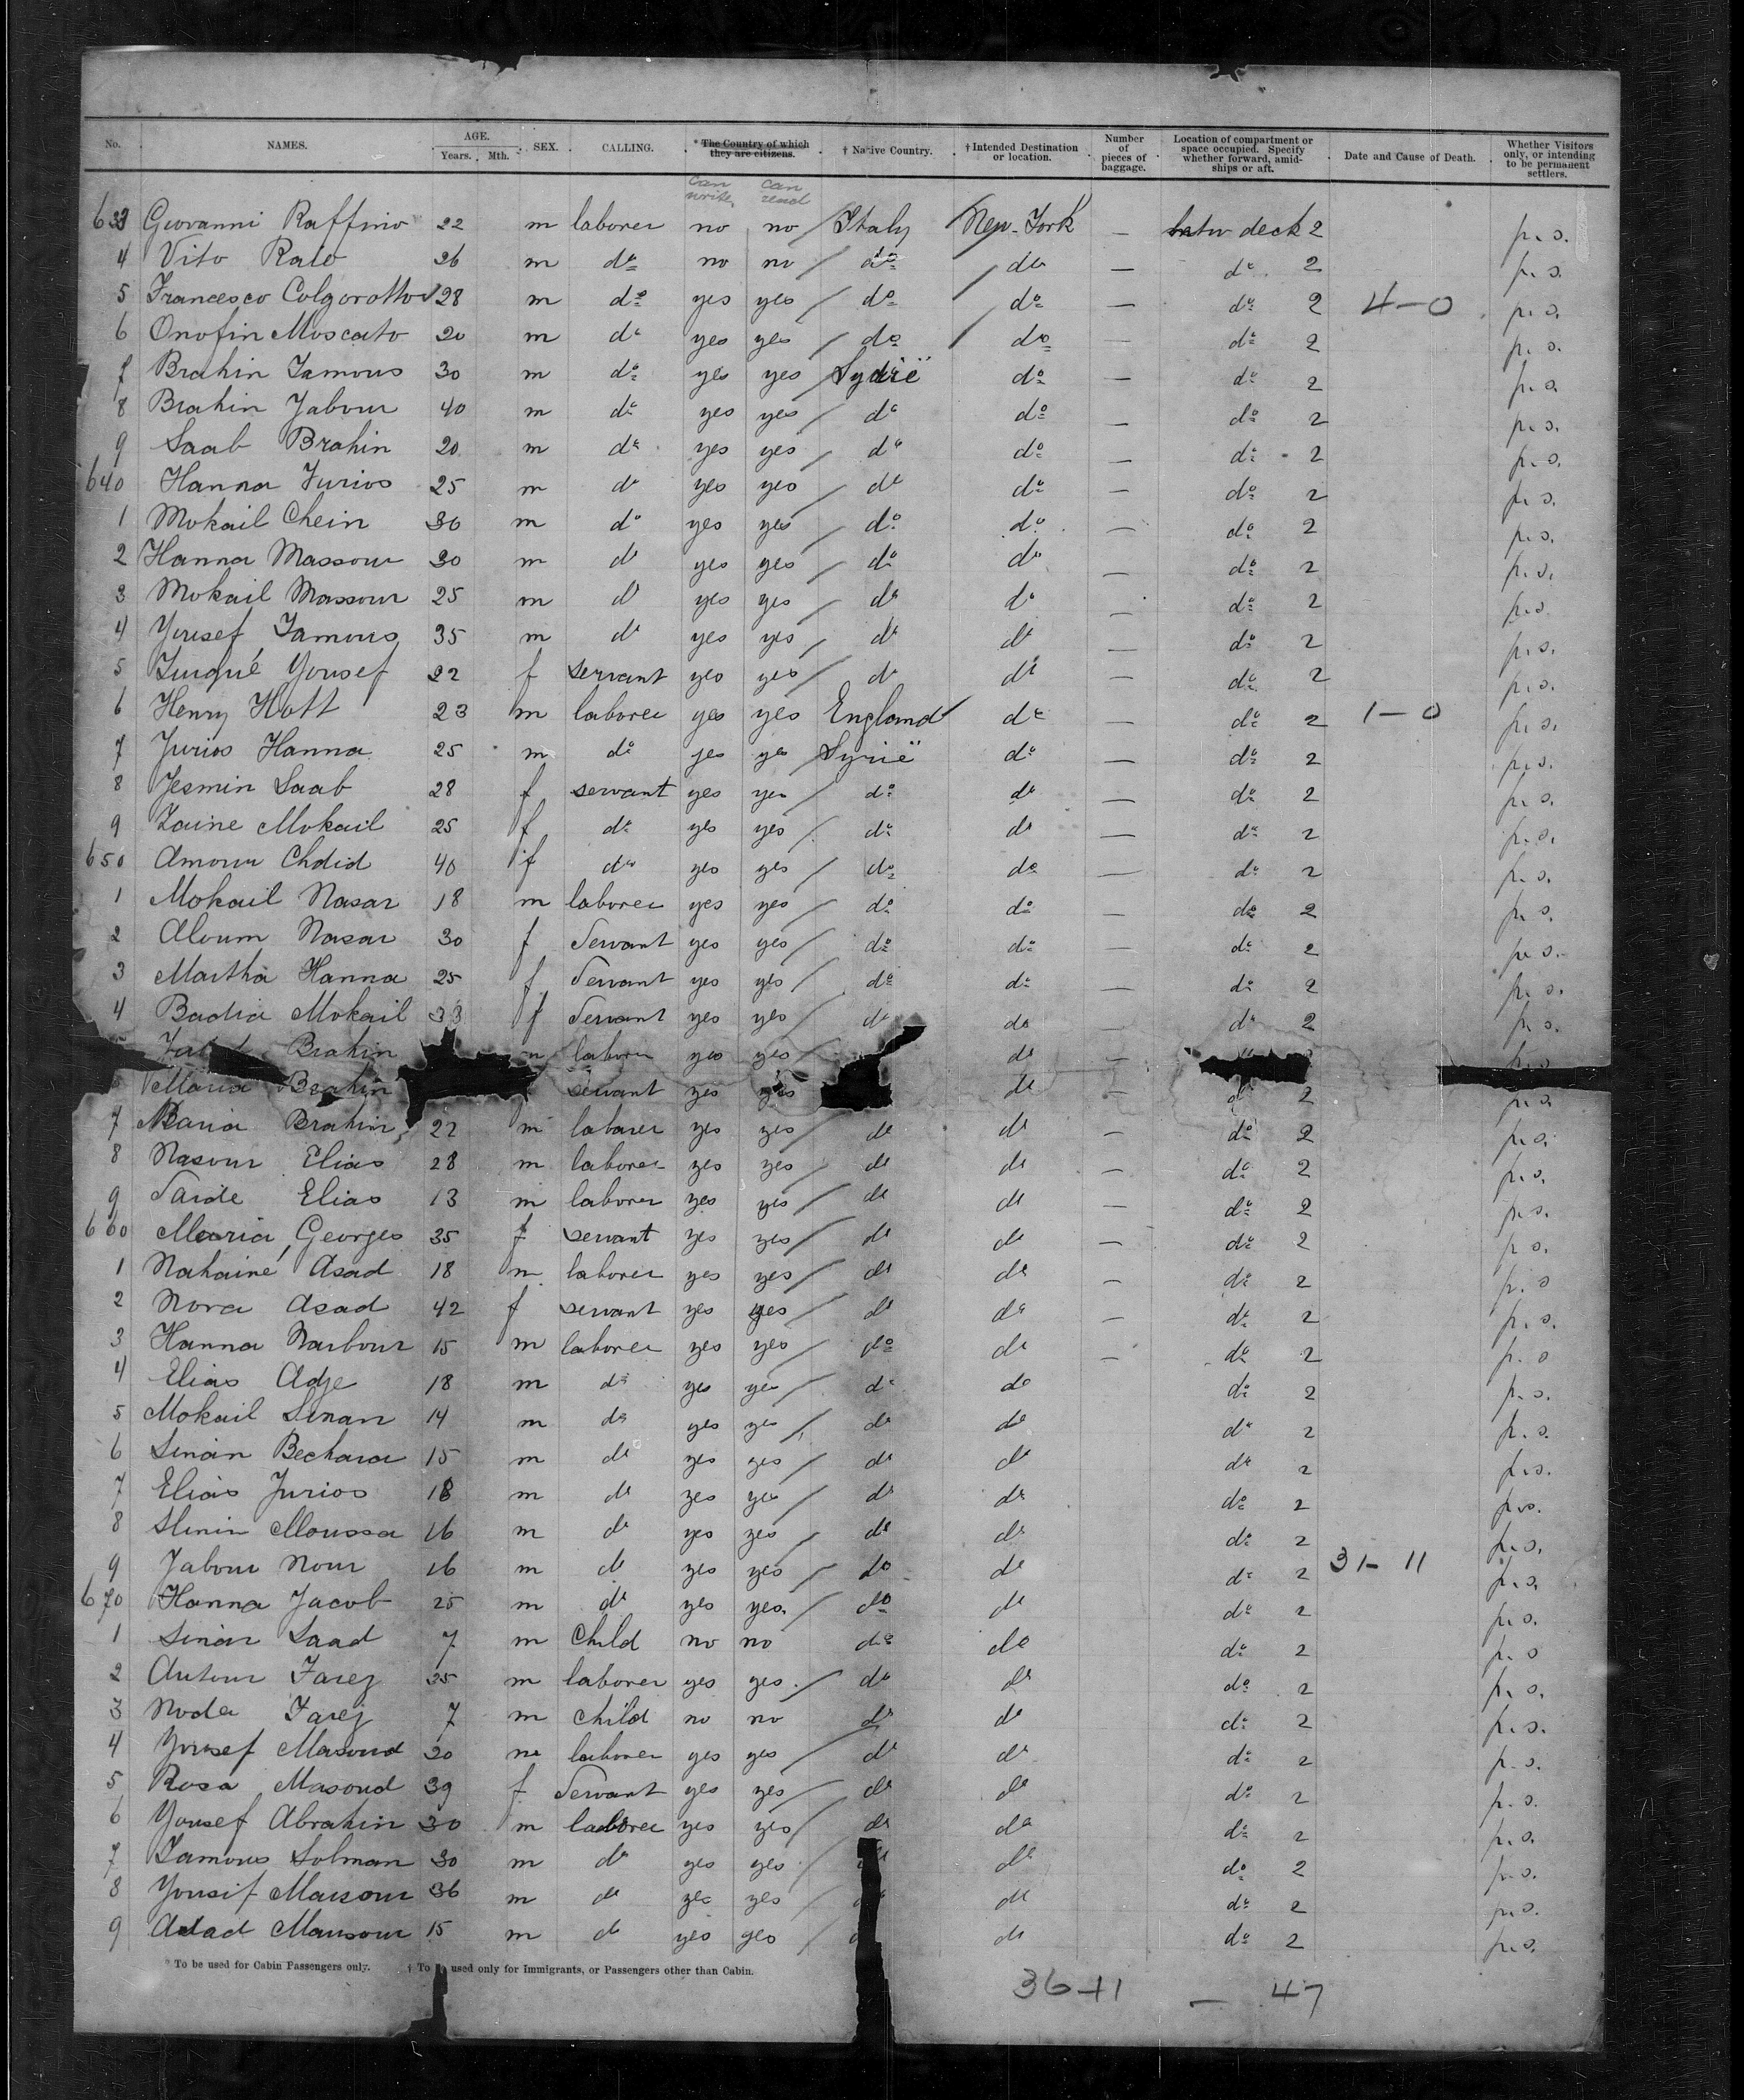 No. NAMES. AGE. Years. Mth. SEX. CALLING. * The Country of which they are citizens. † Native Country. † Intended Destination or location. Number of pieces of baggage. Location of compartment or space occupied. Specify whether forward, amidships or aft. Date and Cause of Death. Whether Visitors only, or intending to be permanent settlers.
can write, can read
633 Giovanni Raffino 22 m laborer no no / Italy / New-York — betw deck 2 p. s.
4 Vito 26 m do no no / do / do — do 2 p. s.
5 Francesco Colgorotto 28 m do yes yes / do do — do 2 4-0 p. s.
6 Onofin Moscato 20 m do yes yes / do / do — do 2 p. s.
7 Brahin Tamous 30 m do yes yes Syrië do — do 2 p. s.
8 Brahin Jabour 40 m do yes yes / do do — do 2 p. s.
9 Saab Brahin 20 m do yes yes / do do — do 2 p. s.
640 Hanna Jurios 25 m do yes yes / do do — do 2 p. s.
1 Mokail Chein 30 m do yes yes / do do — do 2 p. s.
2 Hanna Massour 30 m do yes yes / do do — do 2 p. s.
3 Mokail Massour 25 m do yes yes / do do — do 2 p. s.
4 Yousef Tamous 35 m do yes yes / do do — do 2 p. s.
5 Yousef 22 f servant yes yes / do do — do 2 p. s.
6 Henry Hott 23 m laborer yes yes England do — do 2 1-0 p. s.
7 Jurios Hanna 25 m do yes yes Syrië do — do 2 p. s.
8 Jesmin Saab 28 f servant yes yes / do do — do 2 p. s.
9 Zaine Mokail 25 f do yes yes / do do — do 2 p. s.
650 Amoun Chdid 40 f do yes yes / do do — do 2 p. s.
1 Mokail Nasar 18 m laborer yes yes / do do — do 2 p. s.
2 Aloum Nasar 30 f Servant yes yes / do do — do 2 p. s.
3 Martha Hanna 25 f Servant yes yes / do do — do 2 p. s.
4 Badia Mokail 33 f Servant yes yes / do do — do 2 p. s.
Brahin m laborer yes yes / do — p. s.
Maria Brahin servant yes yes do — do 2 p. s.
7 Maria Brahin 22 m laborer yes yes / do do — do 2 p. s.
8 Nasour Elias 28 m laborer yes yes / do do — do 2 p. s.
9 Saide Elias 13 m laborer yes yes / do do — do 2 p. s.
660 Maria Georges 35 f servant yes yes / do do — do 2 p. s.
1 Nahainé Asad 18 m laborer yes yes / do do — do 2 p. s
2 Nora Asad 42 f servant yes yes / do do — do 2 p. s.
3 Hanna Narbour 15 m laborer yes yes / do do — do 2 p. s
4 Elias Adje 18 m do yes yes / do do do 2 p. s.
5 Mokail Sinan 14 m do yes yes / do do do 2 p. s.
6 Sinan Bechara 15 m do yes yes / do do do 2 p. s.
7 Elias Jurios 18 m do yes yes / do do do 2 p. s.
8 Moussa 16 m do yes yes / do do do 2 p. s.
9 Jabour Nour 16 m do yes yes / do do do 2 31-11 p. s.
670 Hanna Jacob 25 m do yes yes. / do do do 2 p. s.
1 Sinan Saad 7 m Child no no do do do 2 p. s
2 Antour Farez 25 m laborer yes yes. / do do do 2 p. s.
3 Noda Farez 7 m child no no do do do 2 p. s.
4 Yousef Masoud 20 m laborer yes yes / do do do 2 p. s.
5 Rosa Masoud 39 f Servant yes yes / do do do 2 p. s.
6 Yousef Abrahin 30 m laborer yes yes / do do do 2 p. s.
7 Tamous Solman 30 m do yes yes / do do 2 p. s.
8 Yousif Mausour 36 m do yes yes / do do 2 p. s.
9 Adad Mausour 15 m do yes yes / do do 2 p. s.
* To be used for Cabin Passengers only. † To used only for Immigrants, or Passengers other than Cabin.
36-11 — 47